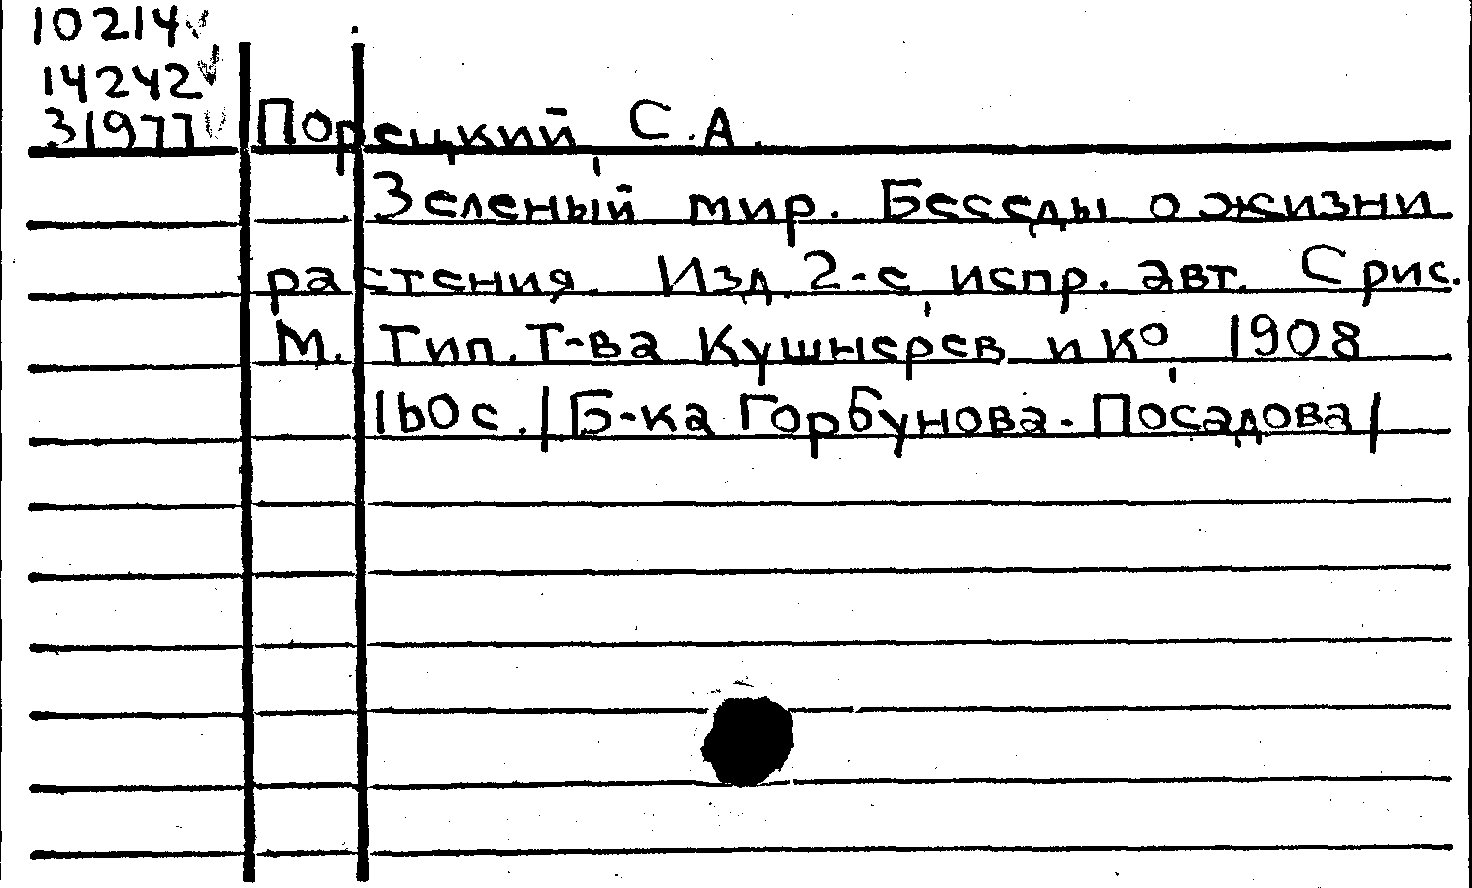 10214
14242
31977
Порецкий, С.А.
Зеленый мир. Беседы о жизни
растения. Изд. 2-е, испр. авт. С рис.
М. Тип. Т-ва Кушнерев и К°, 1908
160 с. /Б-ка Горбунова-Посадова/